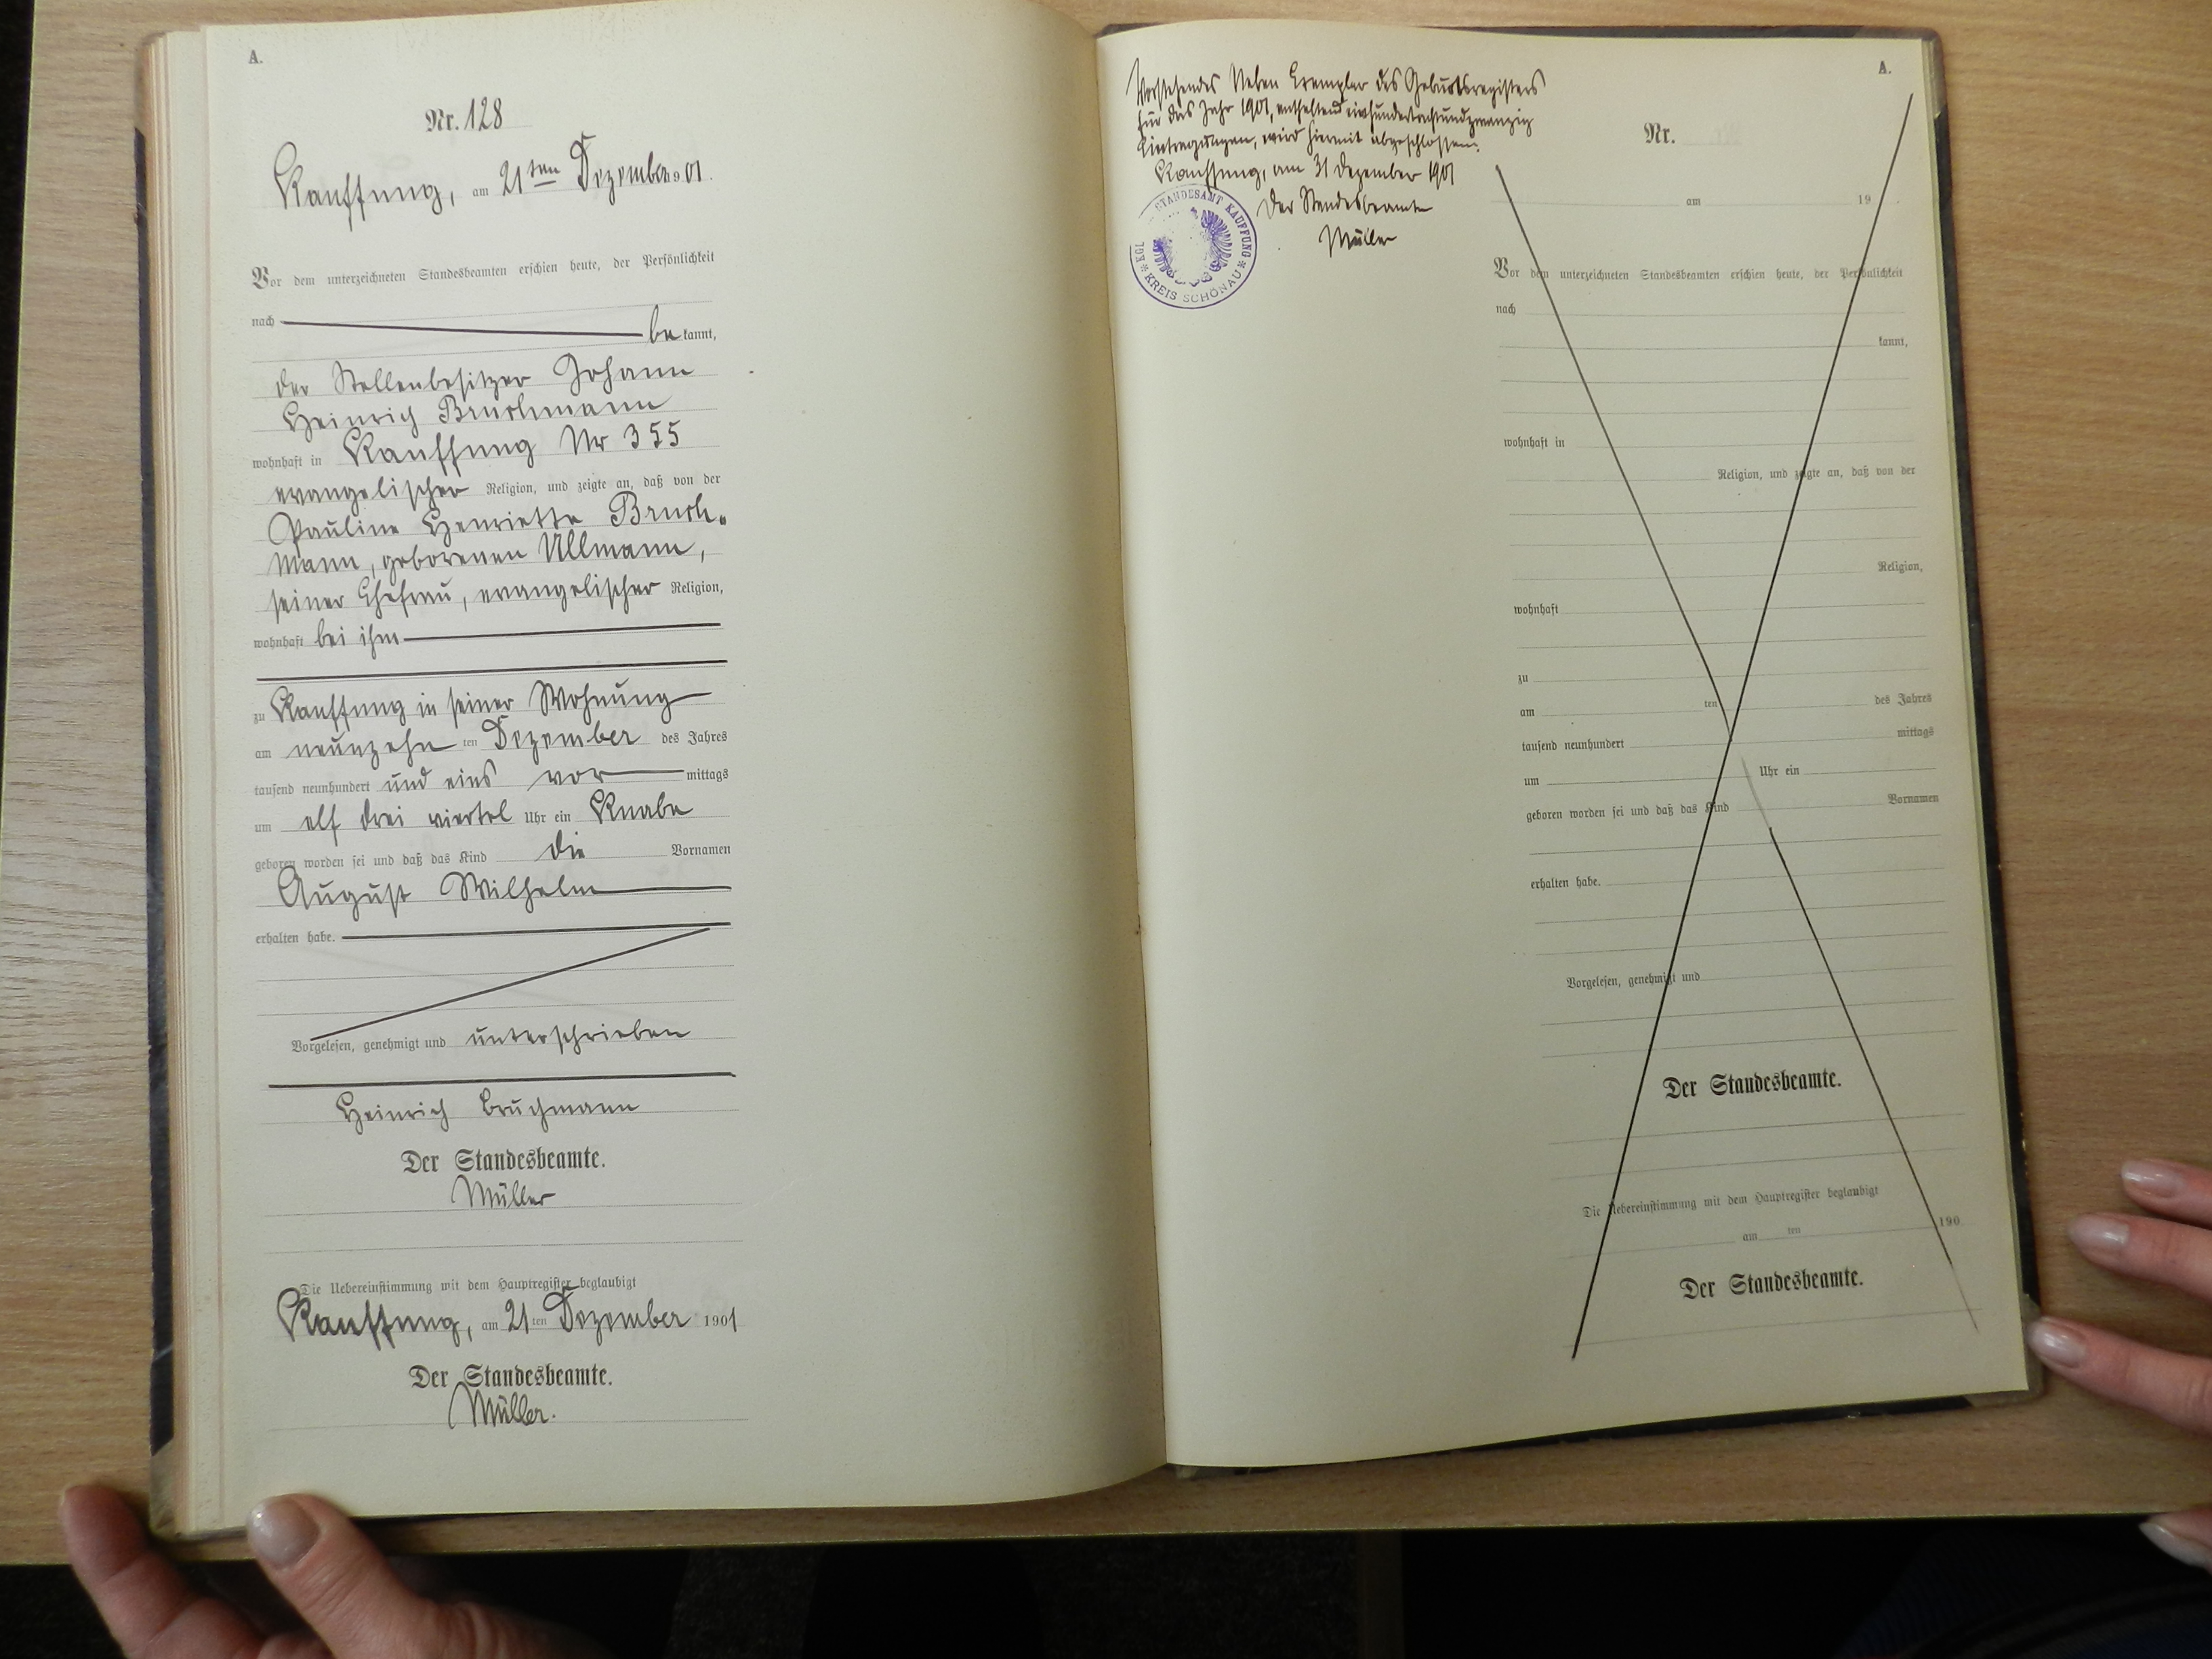 A.
Nr. 128
Kauffung, am 21ten Dezember 1901.
Vor dem unterzeichneten Standesbeamten erschien heute, der Persönlichkeit
nach be kannt,
der Stellenbesitzer Johann
Heinrich Bruchmann
wohnhaft in Kauffung Nr 355
evangelischer Religion, und zeigte an, daß von der
Pauline Henriette Bruch-
mann, geborenen Ullmann,
seiner Ehefrau, evangelischer Religion,
wohnhaft bei ihm
zu Kauffung in seiner Wohnung
am neunzehn ten Dezember des Jahres
tausend neunhundert und eins vor mittags
um elf drei viertel Uhr ein Knabe
geboren worden sei und daß das Kind die Vornamen
August Wilhelm
erhalten habe.
Vorgelesen, genehmigt und unterschrieben
Heinrich Bruchmann
Der Standesbeamte.
Müller
Die Uebereinstimmung mit dem Hauptregister beglaubigt
Kauffung, am 21 ten Dezember 1901
Der Standesbeamte.
Müller.
Vorstehendes Neben Exemplar des Geburtsregisters
für das Jahr 1901, enthaltend einhundertachtundzwanzig
Eintragungen, wird hiermit abgeschlossen.
Kauffung, am 31 Dezember 1901
Der Standesbeamte
Müller
KGL STANDESAMT KAUFFUNG
* KREIS SCHÖNAU *
A.
Nr.
am 19
Vor dem unterzeichneten Standesbeamten erschien heute, der Persönlichkeit
nach
kannt,
wohnhaft in
Religion, und zeigte an, daß von der
Religion,
wohnhaft
zu
am ten des Jahres
tausend neunhundert mittags
um Uhr ein
geboren worden sei und daß das Kind Vornamen
erhalten habe.
Vorgelesen, genehmigt und
Der Standesbeamte.
Die Uebereinstimmung mit dem Hauptregister beglaubigt
am ten 190
Der Standesbeamte.